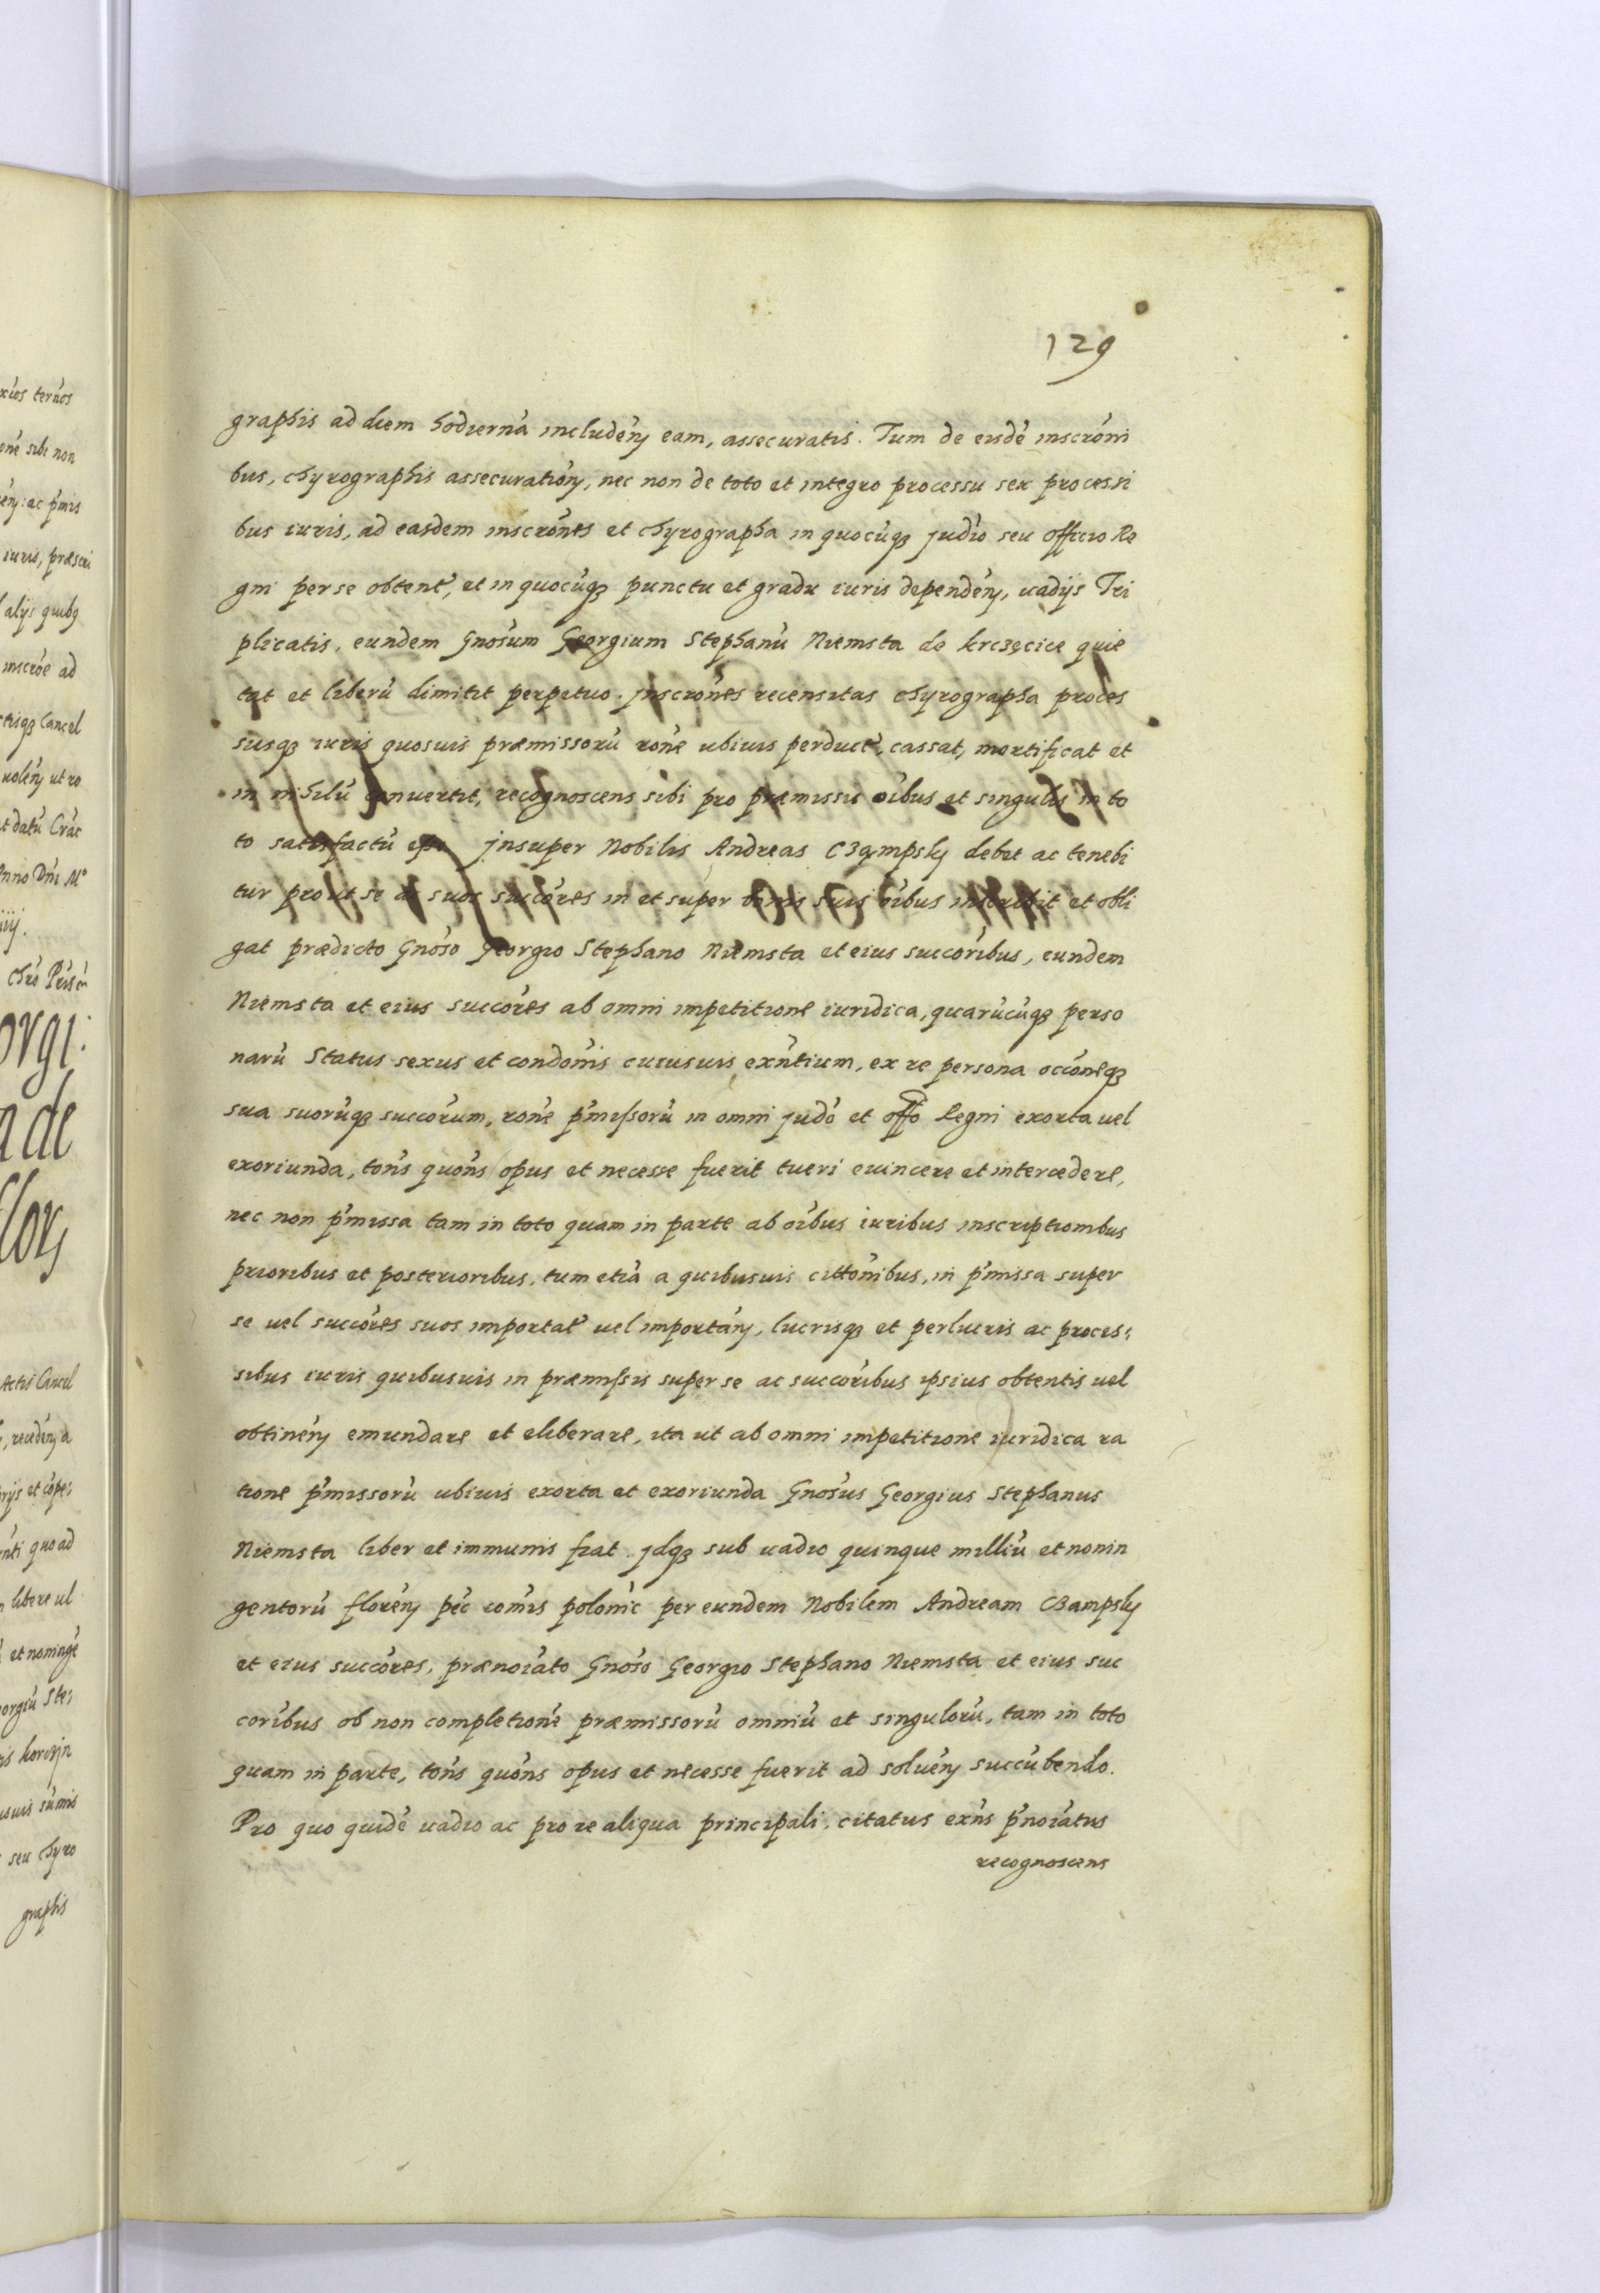 129
graphis ad diem hodierná includéń eam, assecuratis. Tum de eisdé inscrońi
bus, chyrographis assecuratioń, nec non de toto et integro processu seu processi
bus iuris, ad easdem inscrońes et chyrographa in quocúqȝ judió seu officio Re
gni per se obtent, et in quocúqȝ punctu et gradu iuris dependéń, vadijs Tri
plicatis, eundem Gnosum Georgium Stephanú Niemsta de krczęcice quie
tat et liberú dimitit perpetuo. jnscrońes recensitas chyrographa proces
susqȝ iuris quosuis præmissorú rońe ubiuis perduct, cassat, mortificat et
in nihilú convertit, recognoscens sibi pro præmissis oíbus et singulis in to
to satisfactú eße jnsuper Nobilis Andreas Cząmpsky debet ac tenebi
tur prout se ac suos succóres in et super bonis suis oíbus inscribit et obli
gat prædicto Gnoso Georgio Stephano Niemsta et eius succoríbus, eundem
Niemsta et eius succóres ab omni impetitione iuridica, quarúcúqȝ perso
narú status sexus et condońis cuiusuis exńtium, ex re persona occońeqȝ
sua suorúqȝ succórum, rońe pḿissorú in omni judó et offo Regni exorta uel
exoriunda, tońs quońs opus et necesse fuerit tueri euincere et intercedere,
nec non pḿissa tam in toto quam in parte ab oíbus iuribus inscriptionibus
prioribus et posterioribus, tum etiá a quibusuis cittońibus, in pḿissa super
se uel succóres suos importat uel importáń, lucrisqȝ et perlucris ac proces:
sibus iuris quibusuis in præmissis super se ac succoríbus ipsius obtentis uel
obtinéń emundare et eliberare, ita ut ab omni impetitione iuridica ra
tione pḿissorú ubiuis exorta et exoriunda Gnosus Georgius Stephanus
Niemsta liber et immunis fiat. jdqȝ sub uadio quinque milliú et nonin
gentorú floréń péc comís polonic per eundem Nobilem Andream Czampsky
et eius succóres, prænoíato Gnoso Georgio Stephano Niemsta et eius suc
coríbus ob non completioné præmissorú omniú et singulorú, tam in toto
quam in parte, tońs quońs opus et necesse fuerit ad soluéń succúbendo.
Pro quo quidé uadio ac pro re aliqua principali, citatus exńs pńoíatus
recognoscens